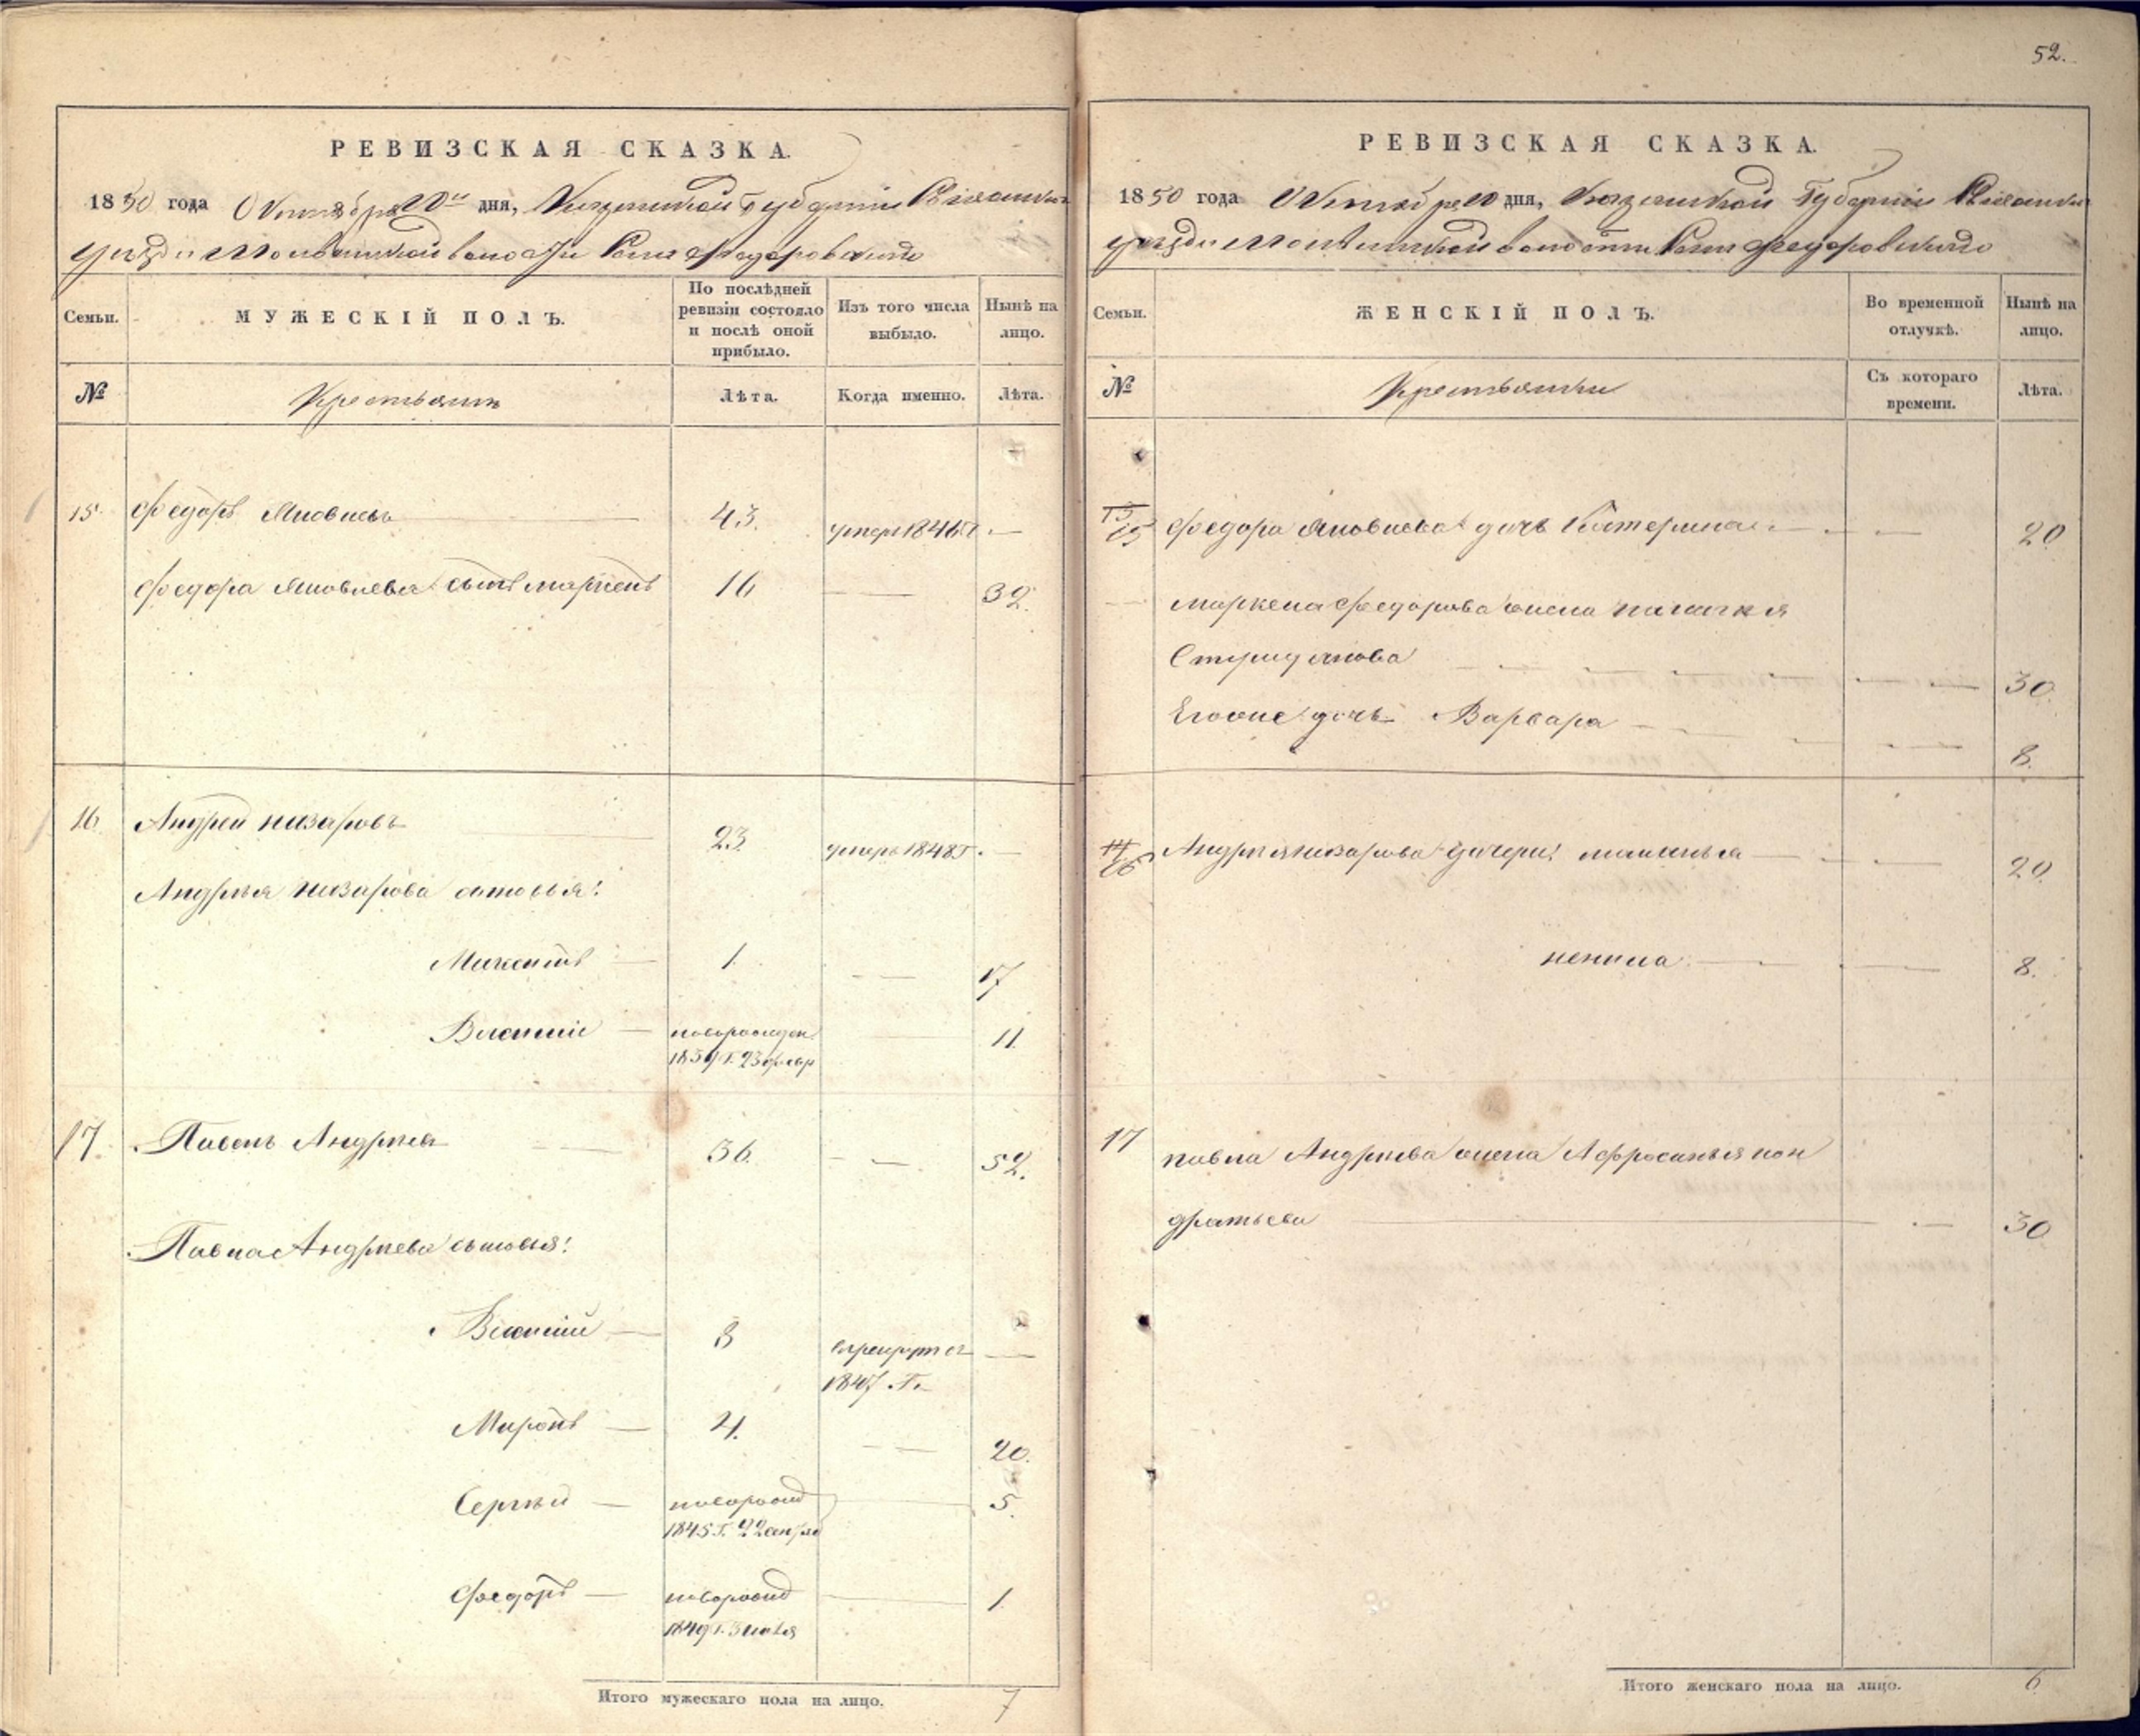 52.
РЕВИЗСКАЯ СКАЗКА.
1850 года Октября 20го дня, Казанской Губернии
уезда волости Села Федоровскаго
Семьи.
МУЖЕСКІЙ ПОЛЪ.
По послѣдней ревизіи состояло и послѣ оной прибыло.
Изъ того числа выбыло.
Нынѣ на лицо.
№
Крестьянъ
Лѣта.
Когда именно.
Лѣта.
15 Федоръ Яковлевъ 43. умеръ 1846 г. —
Федора Яковлева сынъ Маркелъ 16 — 32.
16 Андрей Назаровъ 23 умеръ 1848 г. —
Андрея Назарова сыновья:
1 — 17
Василій — новорожден 11
1839 г. 23 февр
17. Павелъ Андреевъ 36. — 52.
Павла Андреева сыновья:
Василій — 8 въ рекруты —
1847 г.
Миронъ — 4. — 20.
Сергѣй — новорожд 5.
1845 г. 22 сентяб
Федоръ — новорожд 1
1849 г.
Итого мужескаго пола на лицо. 7
РЕВИЗСКАЯ СКАЗКА.
1850 года Октября 20 дня, Казанской Губернии
уезда волости Села Федоровскаго
Семьи.
ЖЕНСКІЙ ПОЛЪ.
Во временной отлучкѣ.
Нынѣ на лицо.
№
Крестьянки
Съ котораго времени.
Лѣта.
15 Федора Яковлева дочь Катерина — 20
Маркела Федорова жена
— 30
Его же дочь Варвара — 8.
16 Андрея Назарова дочери: Маланья — 20.
Ненила — 8.
17 Павла Андреева жена Афросинья Кон
дратьева — 30
Итого женскаго пола на лицо. 6